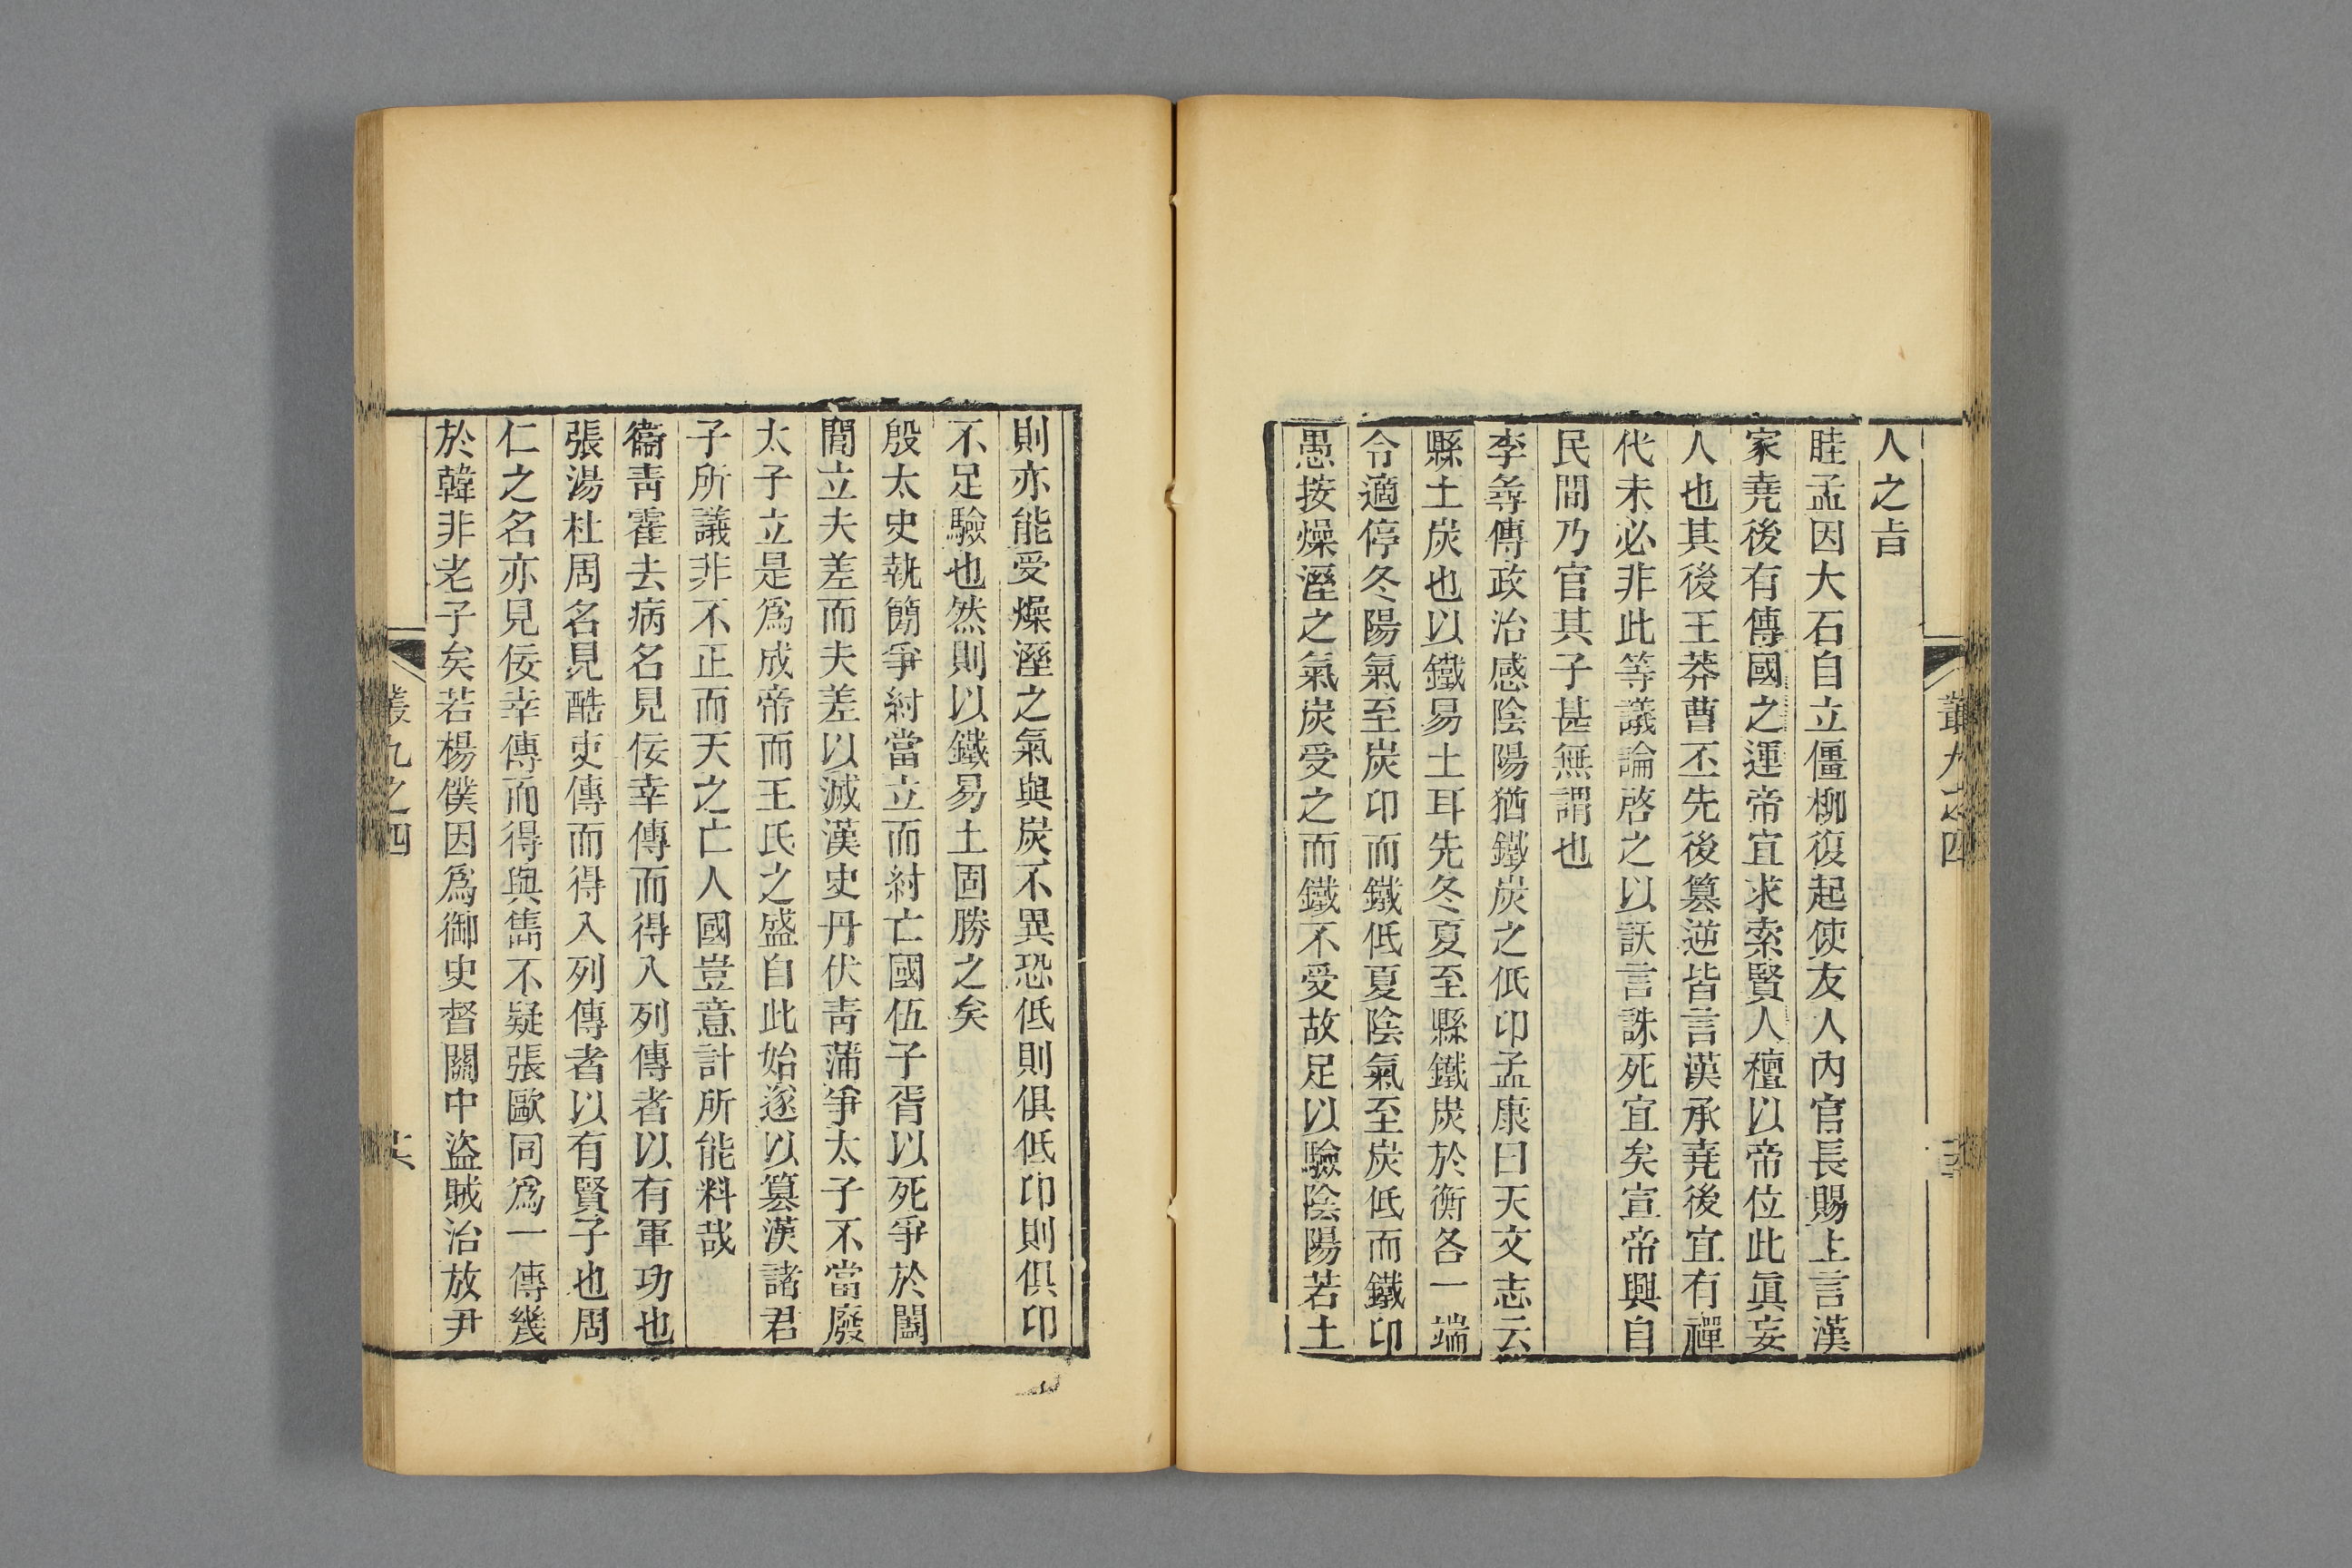 人之㫖
眭孟因大石自立僵柳復起使友人內官長賜上言漢
家堯後有傳國之運帝宜求索賢人禮以帝位此眞妄
人也其後王莽曹丕先後篡逆皆言漢承堯後宜有禪
代未必非此等議論啓之以訞言誅死宜矣宣帝興自
民間乃官其子甚無謂也
李尋傳政治感陰陽猶鐵炭之低卬孟康曰天文志云
縣土炭也以鐵易土耳先冬夏至縣鐵炭於衡各一端
令適停冬陽氣至炭卬而鐵低夏陰氣至炭低而鐵卬
愚按燥溼之氣炭受之而鐵不受故足以驗陰陽若土
則亦能受燥溼之氣與炭不異恐低則俱低卬則俱卬
不足驗也然則以鐵易土固勝之矣
殷太史執簡爭紂當立而紂亡國伍子胥以死爭於闔
閭立夫差而夫差以滅漢史丹伏靑蒲爭太子不當廢
太子立是爲成帝而王氏之盛自此始遂以篡漢諸君
子所議非不正而天之亡人國豈意計所能料哉
衞靑霍去病名見佞幸傳而得入列傳者以有軍功也
張湯杜周名見酷吏傳而得入列傳者以有賢子也周
仁之名亦見佞幸傳而得與雋不疑張歐同爲一傳幾
於韓非老子矣若楊僕因爲御史督關中盜賊治放尹
叢九之四